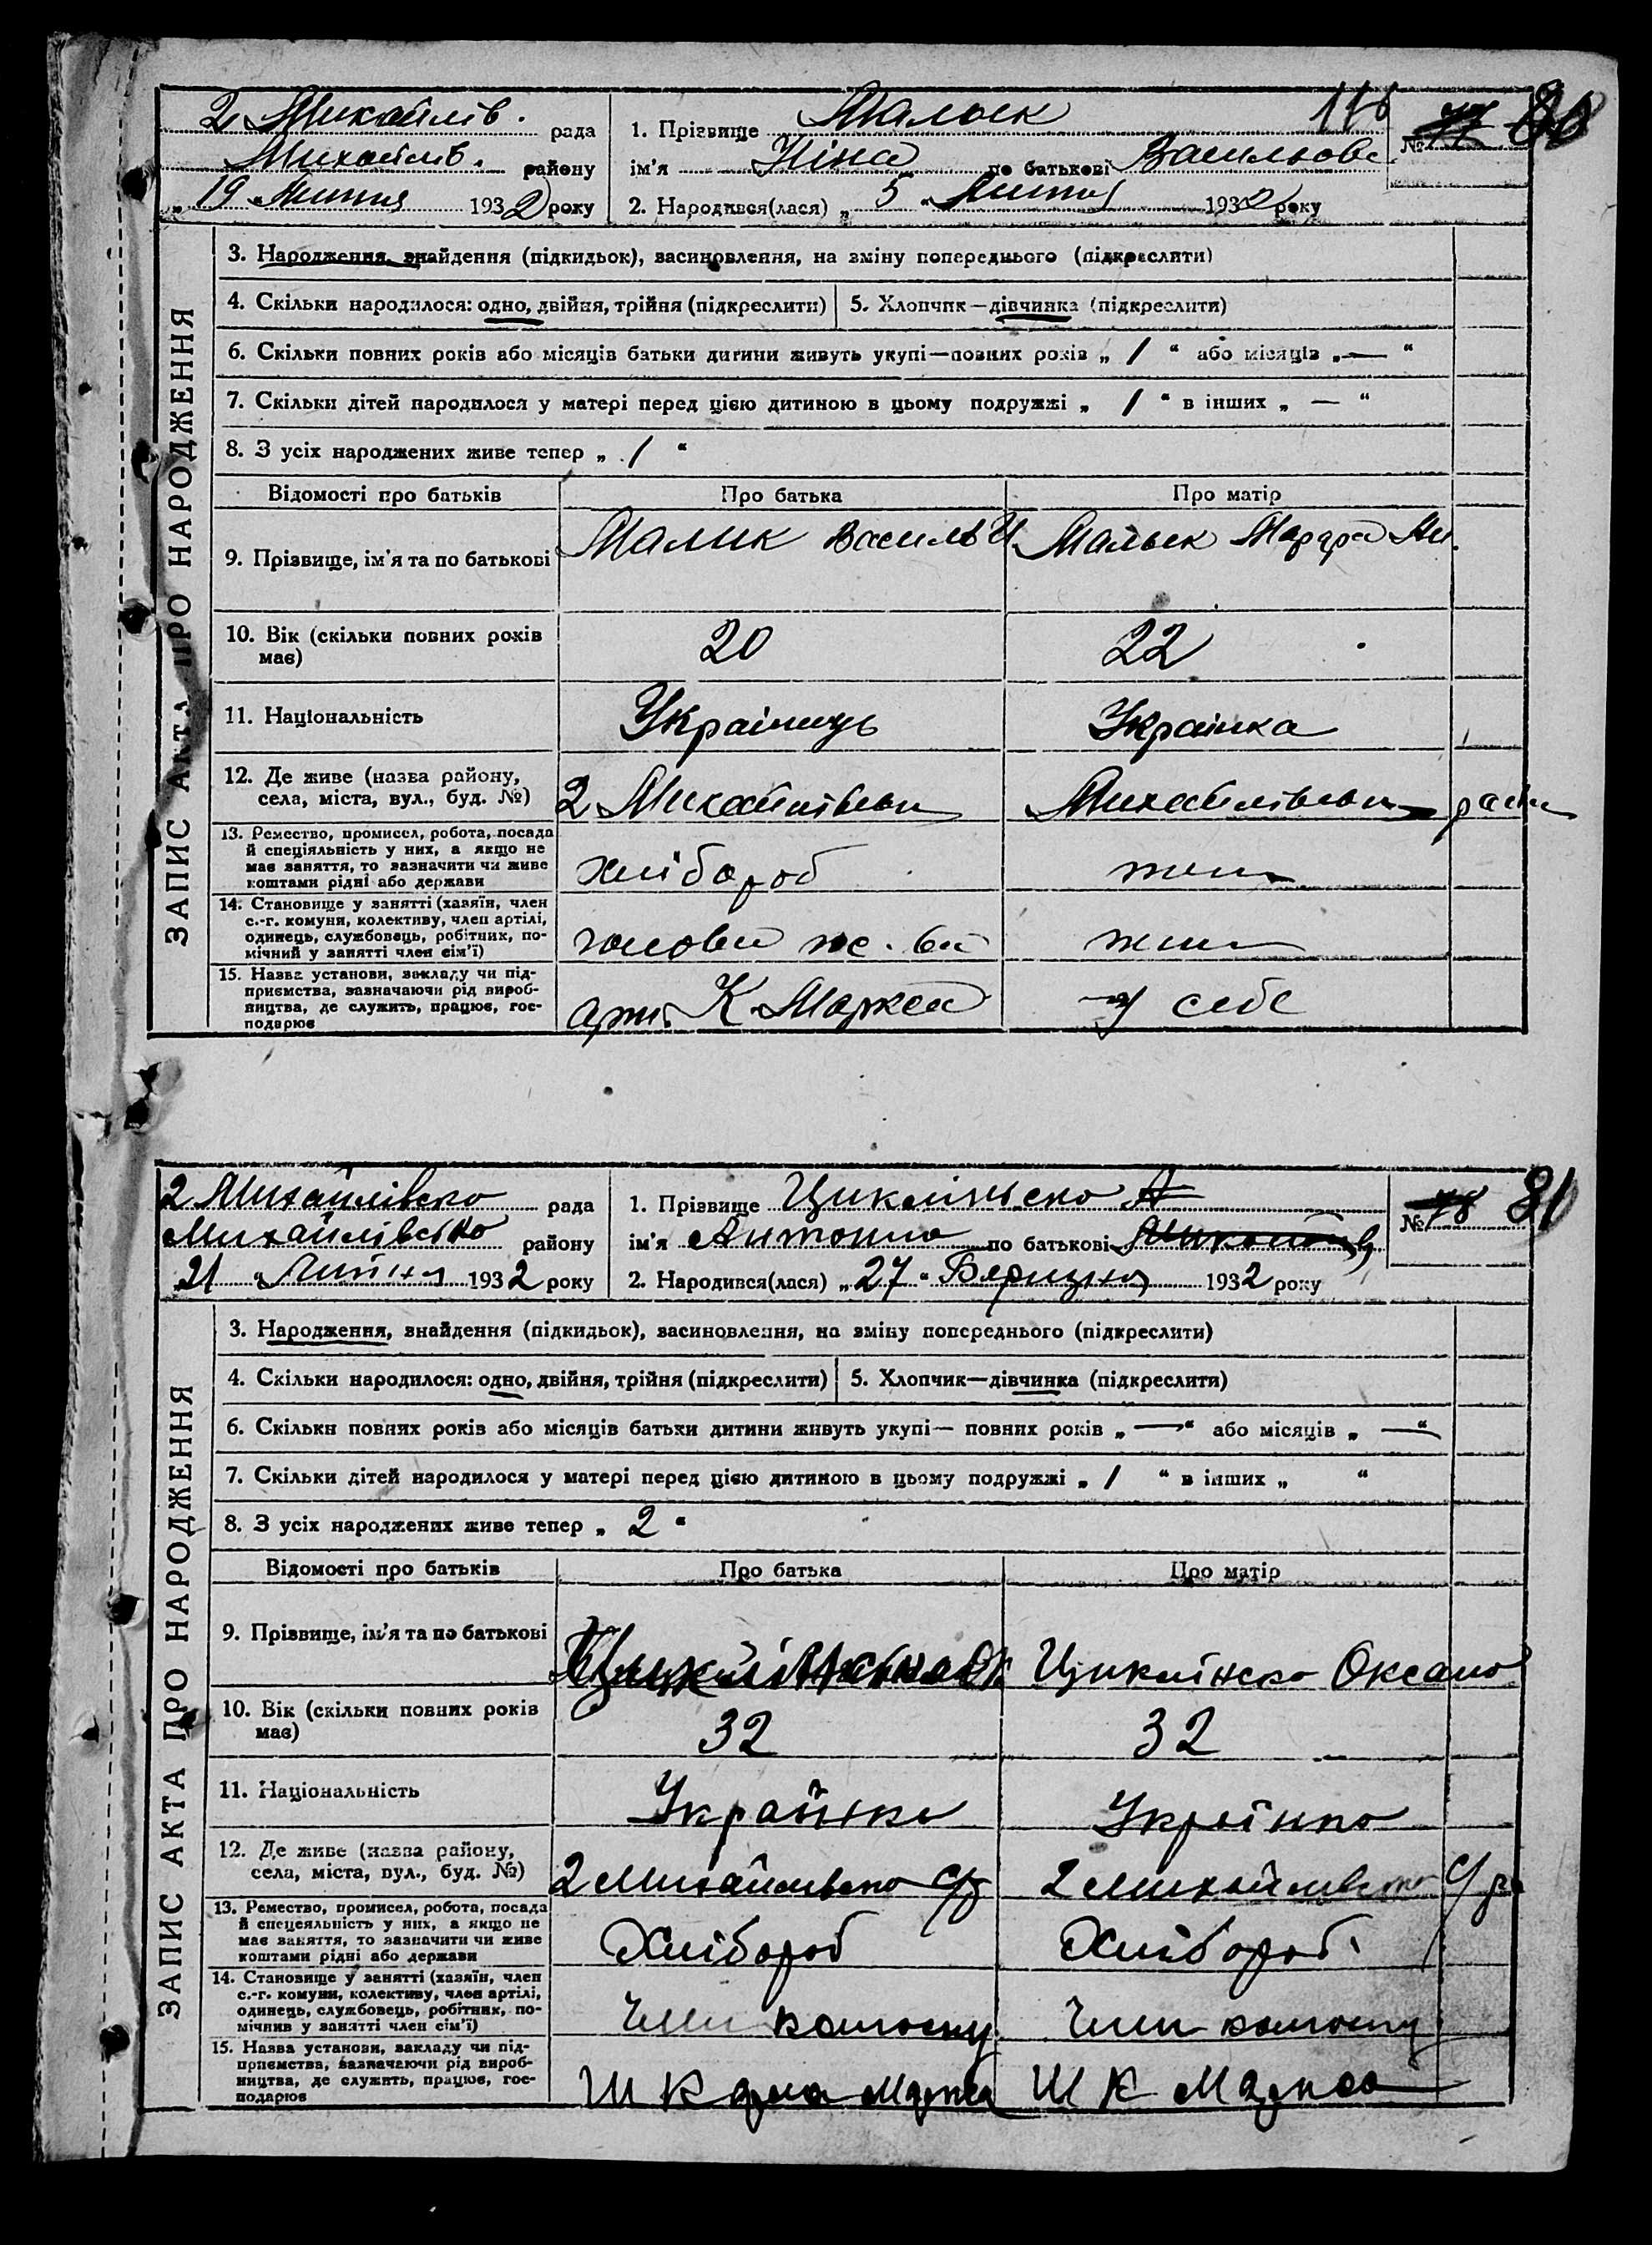 2 Михайлів. рада
Михайлів. району
„19 " Липня 1932 року
1. Прізвище Мальск 116
ім'я Ніна по батькові Васильовс
2. Народився(лася) „ 5 " Липня 1932 року
№ 77 80
ЗАПИС АКТА ПРО НАРОДЖЕННЯ
3. Народження, знайдення (підкидьок), васиновлення, на зміну попереднього (підкреслити)
4. Скільки народилося: одно, двійня, трійня (підкреслити) 5. Хлопчик—дівчинка (підкреслити)
6. Скільки повних років або місяців батьки дитини живуть укупі—повних років „ 1 " або місяців „ — "
7. Скільки дітей народилося у матері перед цією дитиною в цьому подружжі „ 1 " в інших „ — "
8. З усіх народжених живе тепер „ 1 "
Відомості про батьків Про батька Про матір
9. Прізвище, ім'я та по батькові Малик Василь И. Мальек
10. Вік (скільки повних років має) 20 22
11. Національність Українець Українка
12. Де живе (назва району, села, міста, вул., буд. №) 2 Михайлівськ Михайлівськ ради
13. Ремество, промисел, робота, посада й спеціяльність у них, а якщо не має заняття, то зазначити чи живе коштами рідні або держави хлібороб
14. Становище у занятті (хазяїн, член с.-г. комуни, колективу, член артілі, одинець, службовець, робітник, помічний у занятті член сім'ї)
15. Назва установи, закладу чи підприємства, зазначаючи рід виробництва, де служить, працює, господарює арт. К Маркса у себе
2 Михайлівско рада
Михайлівсько району
21 " Липня 1932 року
1. Прізвище Циклінсько А
ім'я Антонина по батькові
2. Народився(лася) „ 27 " Березня 1932 року
№ 78 81
ЗАПИС АКТА ПРО НАРОДЖЕННЯ
3. Народження, знайдення (підкидьок), васиновлення, на зміну попереднього (підкреслити)
4. Скільки народилося: одно, двійня, трійня (підкреслити) 5. Хлопчик—дівчинка (підкреслити)
6. Скільки повних років або місяців батьки дитини живуть укупі— повних років „ — " або місяців „ — "
7. Скільки дітей народилося у матері перед цією дитиною в цьому подружжі „ 1 " в інших „ "
8. З усіх народжених живе тепер „ 2 "
Відомості про батьків Про батька Про матір
9. Прізвище, ім'я та по батькові Циклінско Оксано
10. Вік (скільки повних років має) 32 32
11. Національність Українка Українка
12. Де живе (назва району, села, міста, вул., буд. №) 2 Михайлівско с/р 2 Михайлівско с/ра
13. Ремество, промисел, робота, посада й спецеяльність у них, а якщо не має заняття, то зазначити чи живе коштами рідні або держави Хлібороб Хлібороб
14. Становище у занятті (хазяїн, член с.-г. комуни, колективу, член артілі, одинець, службовець, робітник, помічнив у занятті член сім'ї) Член колгоспу Член колгоспу
15. Назва установи, закладу чи підприємства, зазначаючи рід виробництва, де служить, працює, господарює Ш Карла Маркса Ш К Маркса